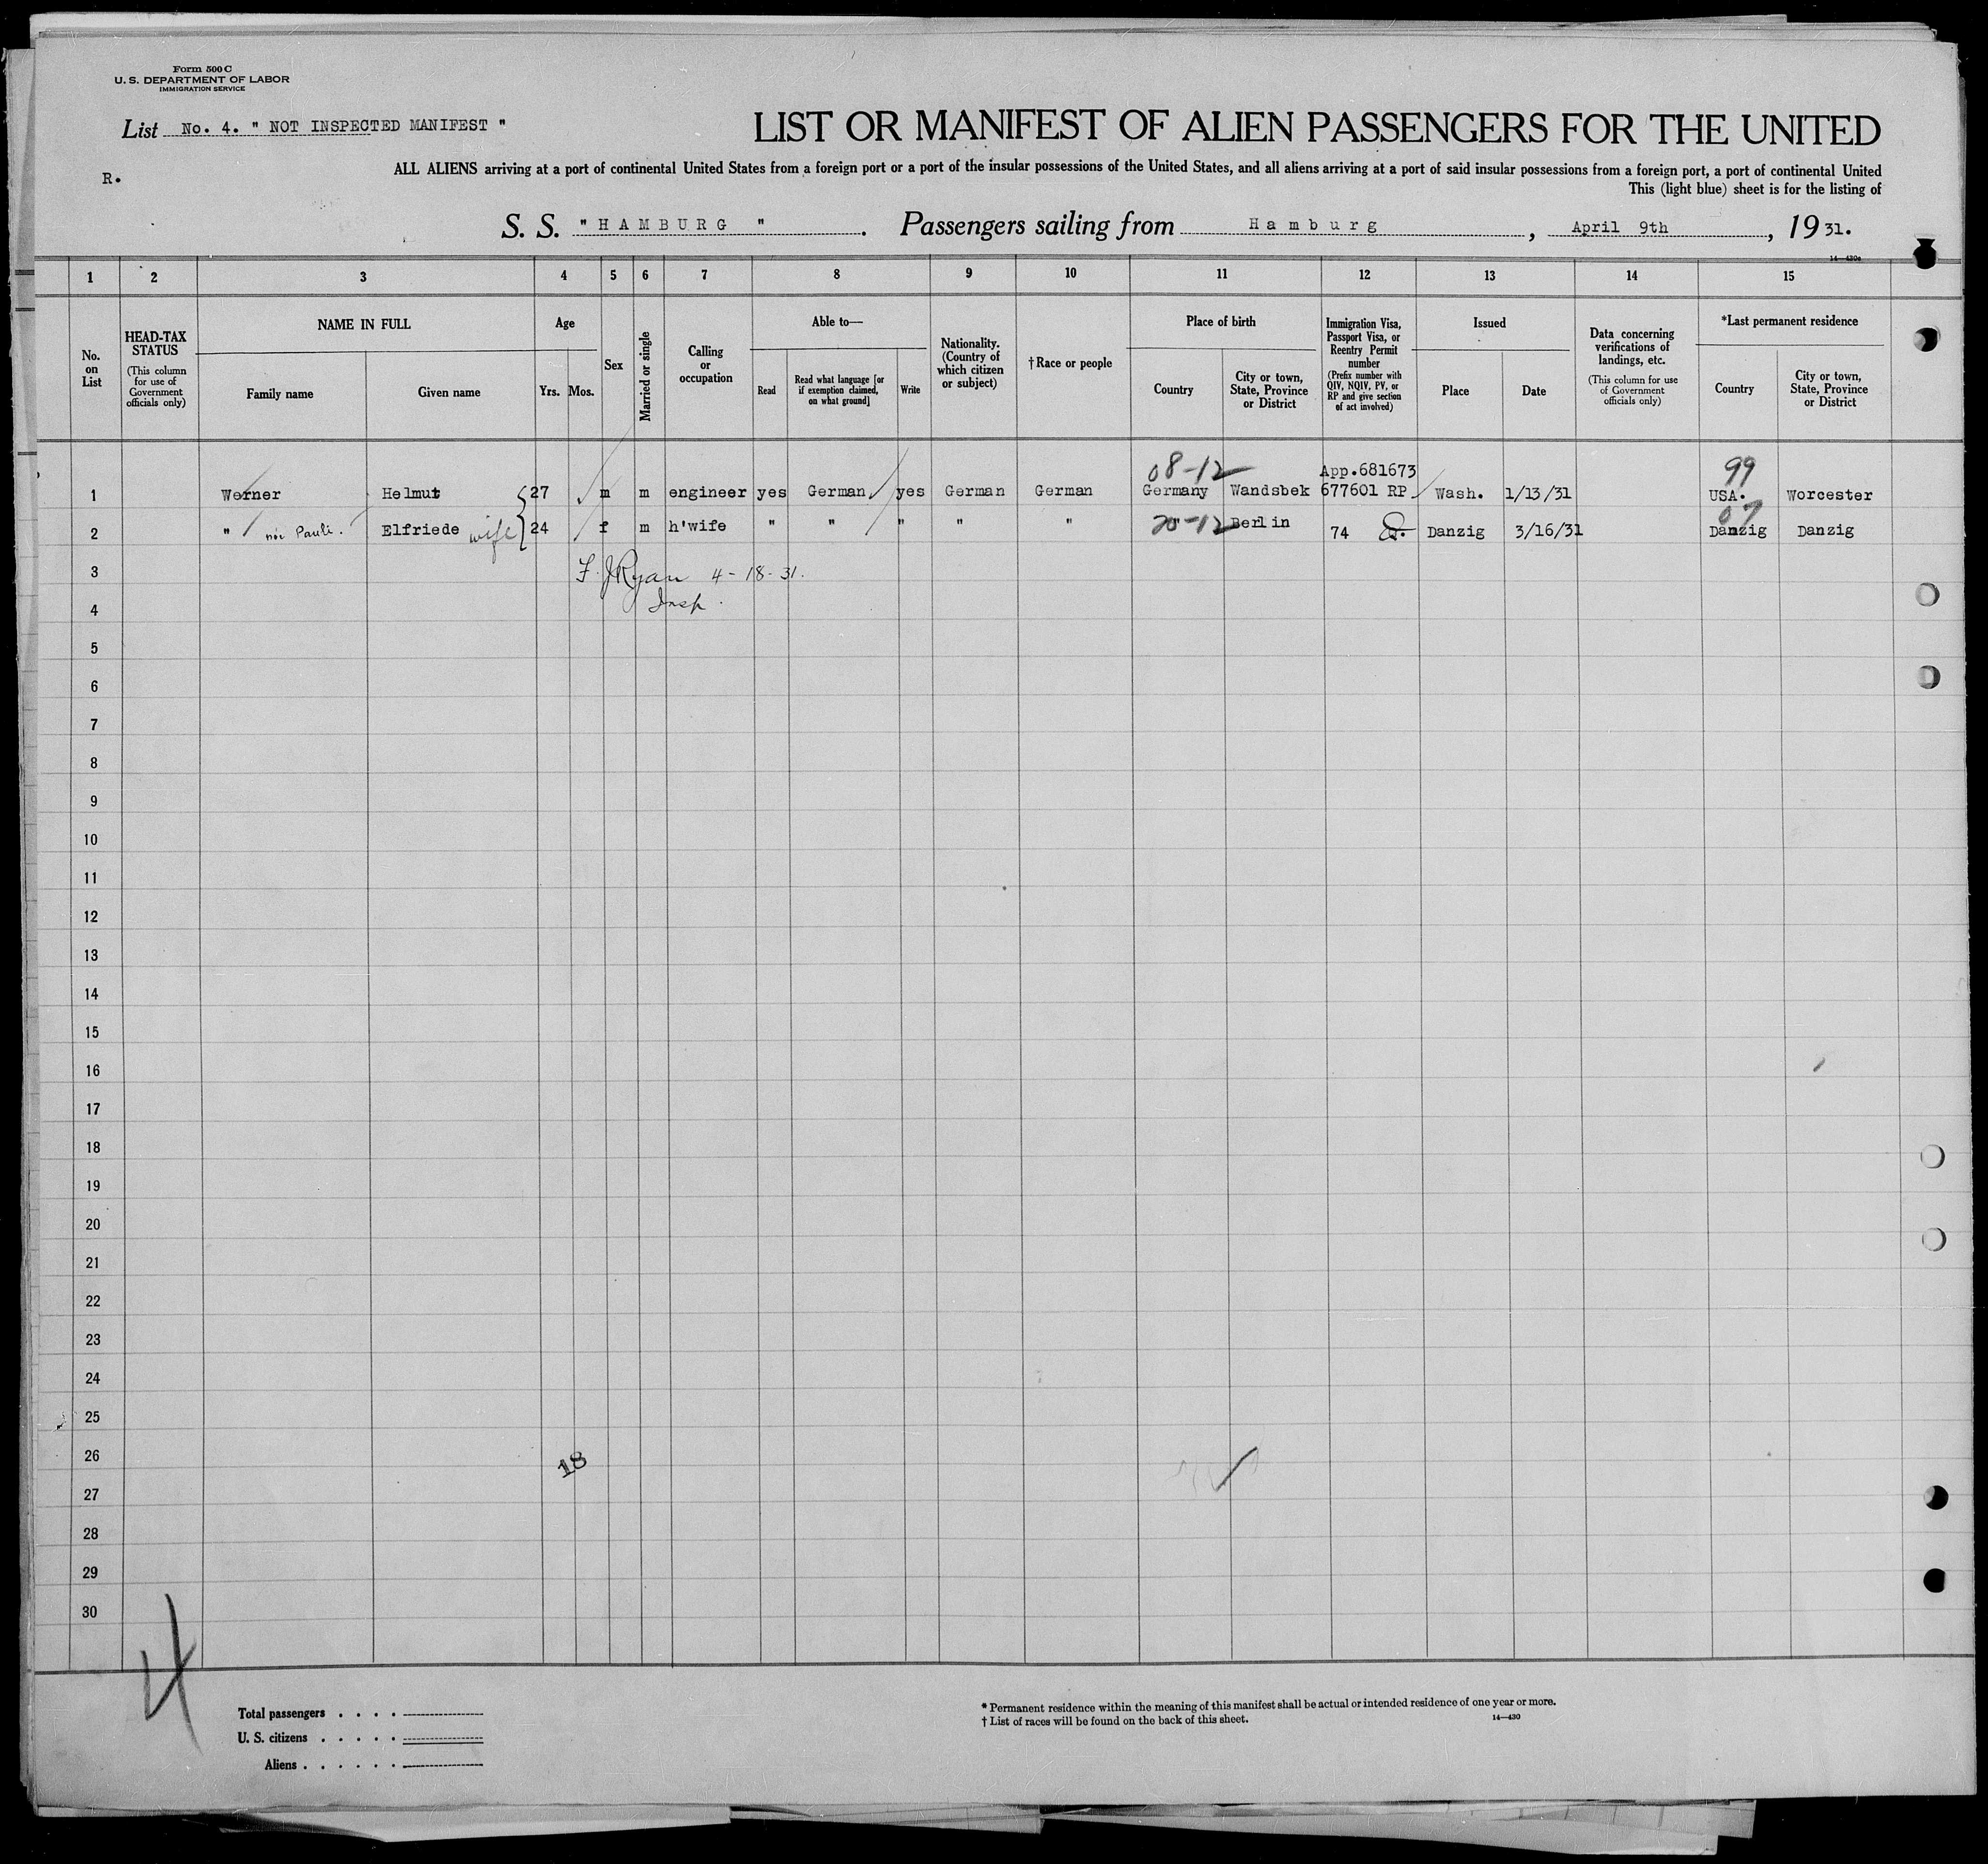 Form 500 C
U. S. DEPARTMENT OF LABOR
IMMIGRATION SERVICE
List No. 4. " NOT INSPECTED MANIFEST "
LIST OR MANIFEST OF ALIEN PASSENGERS FOR THE UNITED
R.
ALL ALIENS arriving at a port of continental United States from a foreign port or a port of the insular possessions of the United States, and all aliens arriving at a port of said insular possessions from a foreign port, a port of continental United
This (light blue) sheet is for the listing of
S. S. " H A M B U R G " . Passengers sailing from H a m b u r g , April 9th , 19 31.
14—430a
1 2 3 4 5 6 7 8 9 10 11 12 13 14 15
No. on List
HEAD-TAX STATUS
(This column for use of Government officials only)
NAME IN FULL
Family name
Given name
Age
Yrs. Mos.
Sex
Married or single
Calling or occupation
Able to—
Read
Read what language [or if exemption claimed, on what ground]
Write
Nationality. (Country of which citizen or subject)
† Race or people
Place of birth
Country
City or town, State, Province or District
Immigration Visa, Passport Visa, or Reentry Permit number
(Prefix number with QIV, NQIV, PV, or RP and give section of act involved)
Issued
Place
Date
Data concerning verifications of landings, etc.
(This column for use of Government officials only)
*Last permanent residence
Country
City or town, State, Province or District
08-12 App.681673 99
1 Werner Helmut 27 m m engineer yes German yes German German Germany Wandsbek 677601 RP Wash. 1/13/31 USA. Worcester
07
2 " Elfriede wife 24 f m h'wife " " " " " 20-12 Berlin 74 Danzig 3/16/31 Danzig Danzig
3 F. J Ryan 4-18-31.
4 Insp.
5
6
7
8
9
10
11
12
13
14
15
16
17
18
19
20
21
22
23
24
25
26 18
27
28
29
30
4
Total passengers . . . .
U. S. citizens . . . . .
Aliens . . . . . .
* Permanent residence within the meaning of this manifest shall be actual or intended residence of one year or more.
† List of races will be found on the back of this sheet.
14—430